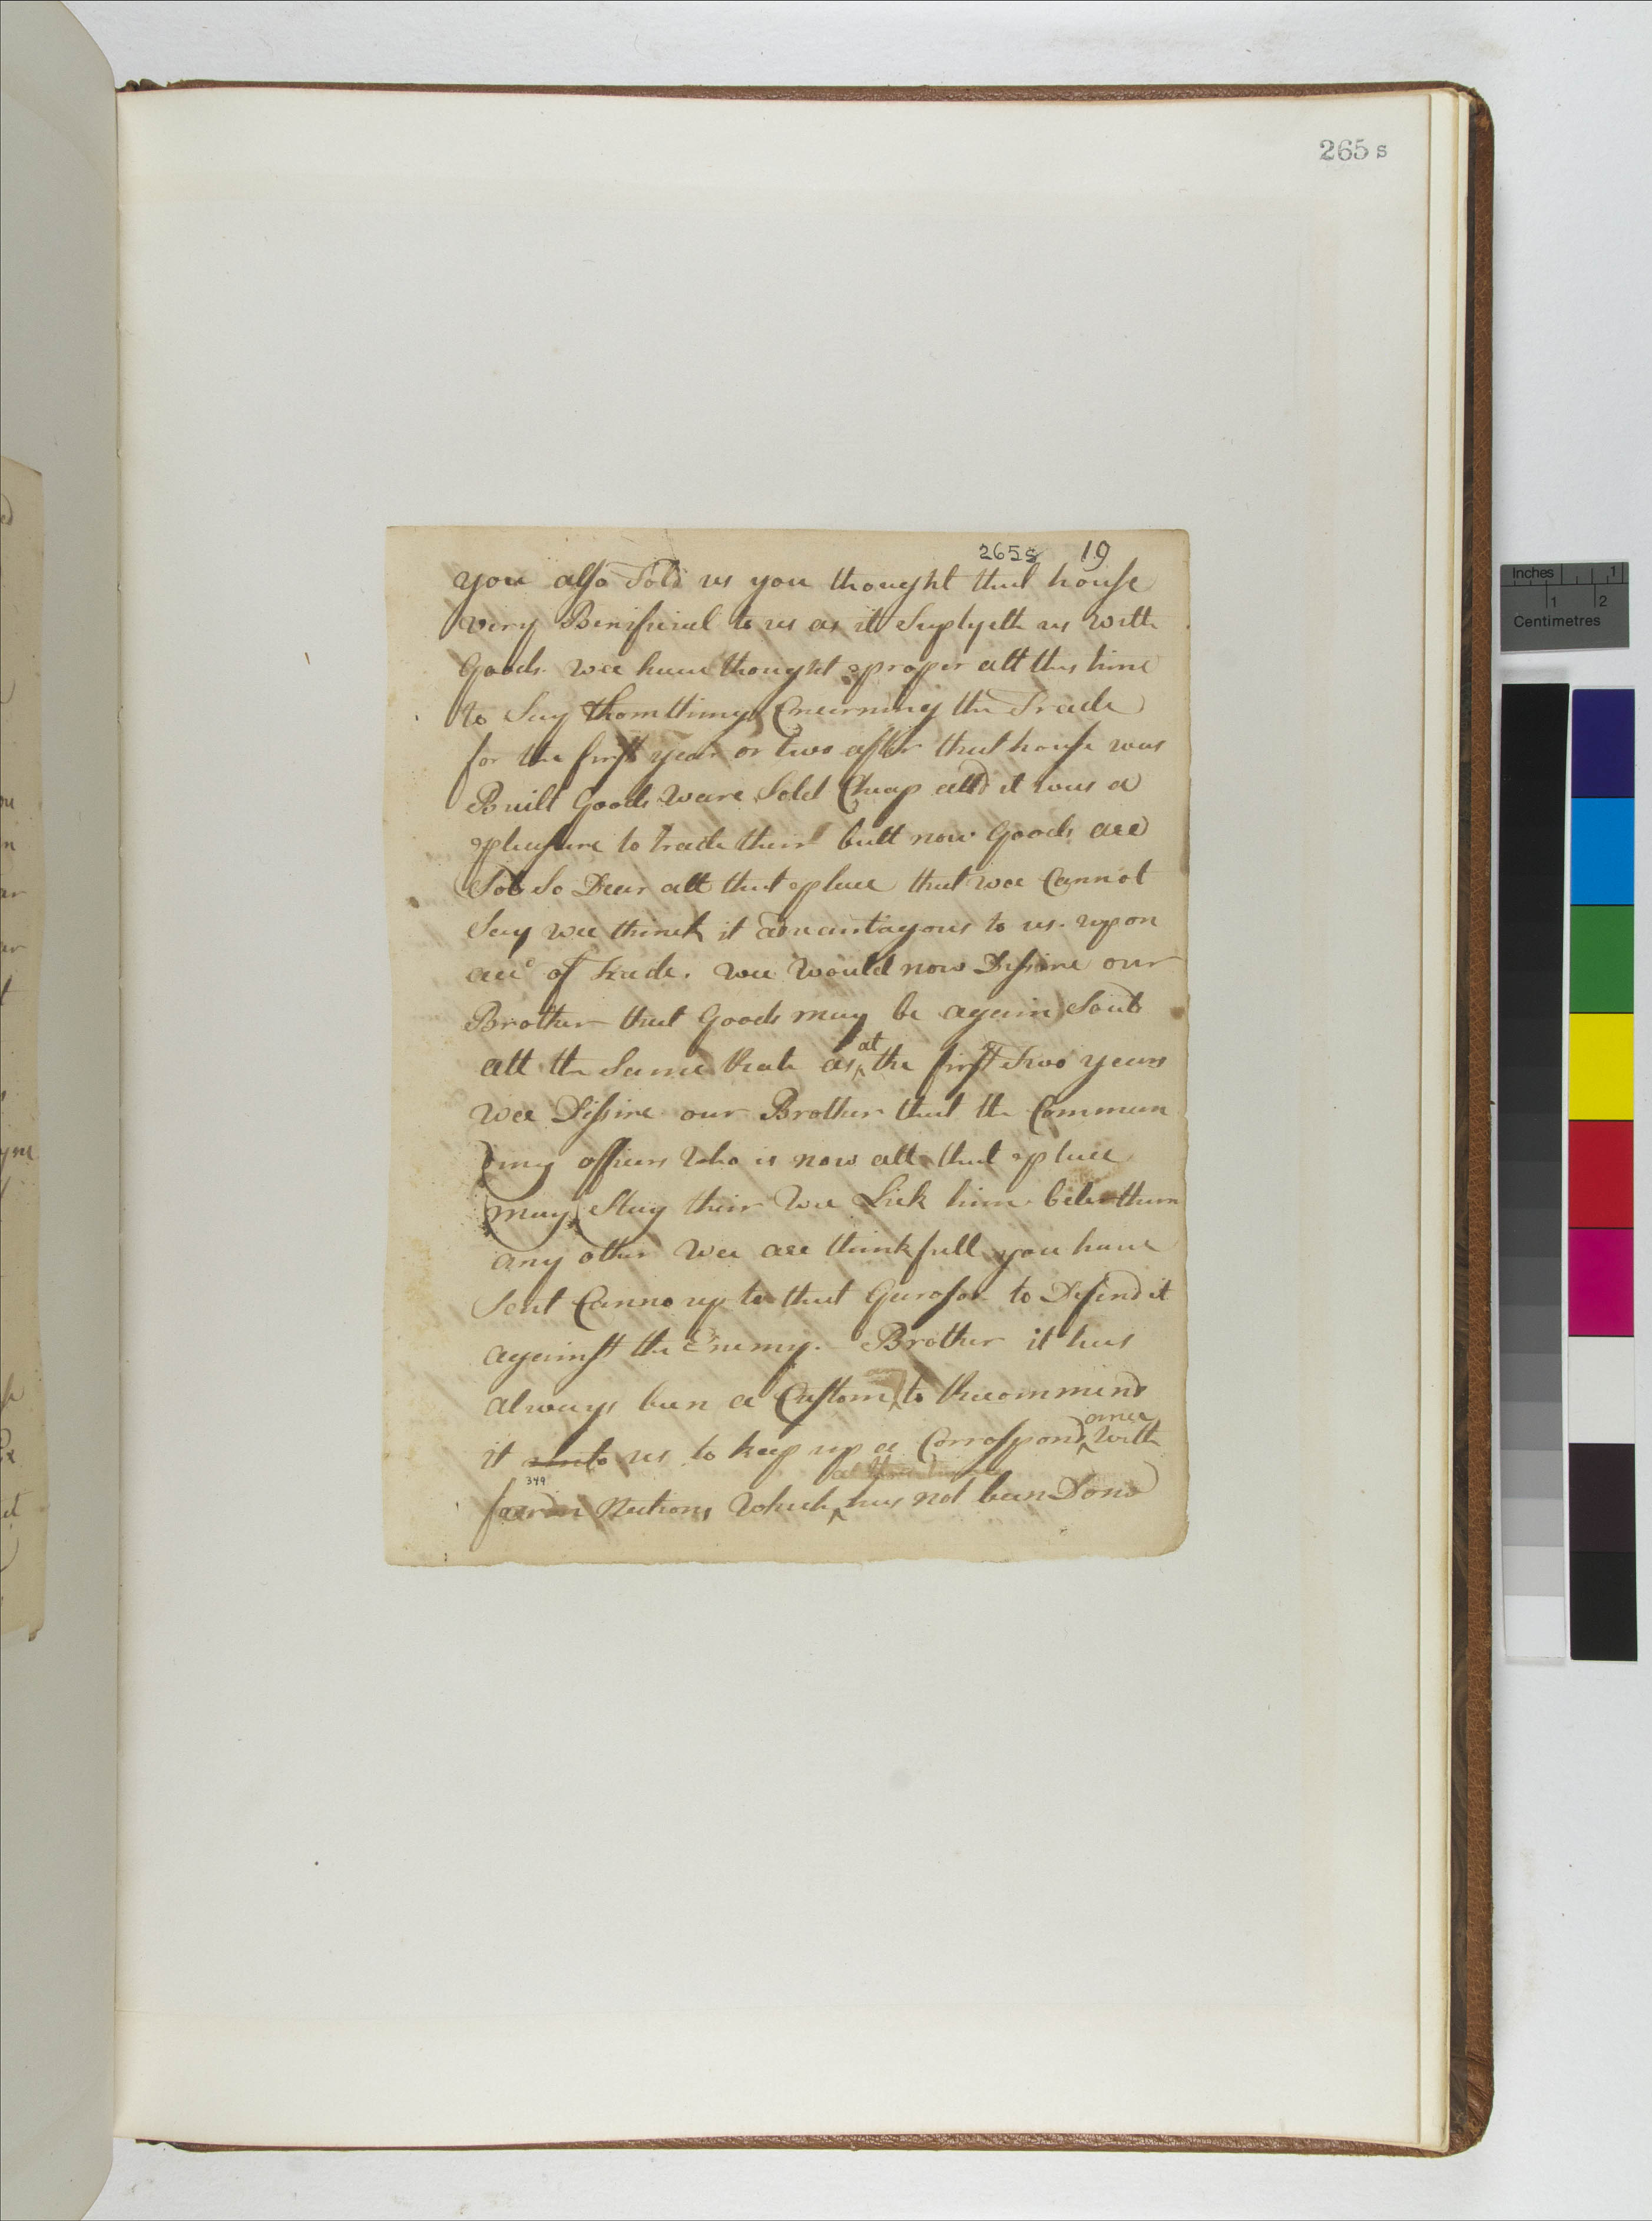 265 s
265s 19
you also Told us you thought that house
very Benificial to us as it Suplyeth us with
Goods. wee have thought proper att this time
to Say thomthing Concerning the Trade
for the first year or two after that house was
Built Goods Ware Sold Cheap attd it was a
pleasure to trade their butt now Goods are
Sol So Dear att that place that wee Cannot
Say wee think it advantagous to us. upon
acc° of trade. wee Would now Dessire our
Brother that Goods may be again Sould
att the Same Rate as at the first Two years
Wee Dissire our Brother that the Commun
ding officer Who is now att that place
may Stay their Wee Lick him beter tham
any other Wee are thinkfull you have
Sent Canno up to that Garoson to Defend it
against the Enemy. Brother it has
always been a Custom to Recommend
it unto us to keep up a Corrospond ance With
349
farrin Nations Which has not been Done
Inches 1
1 2
Centimetres